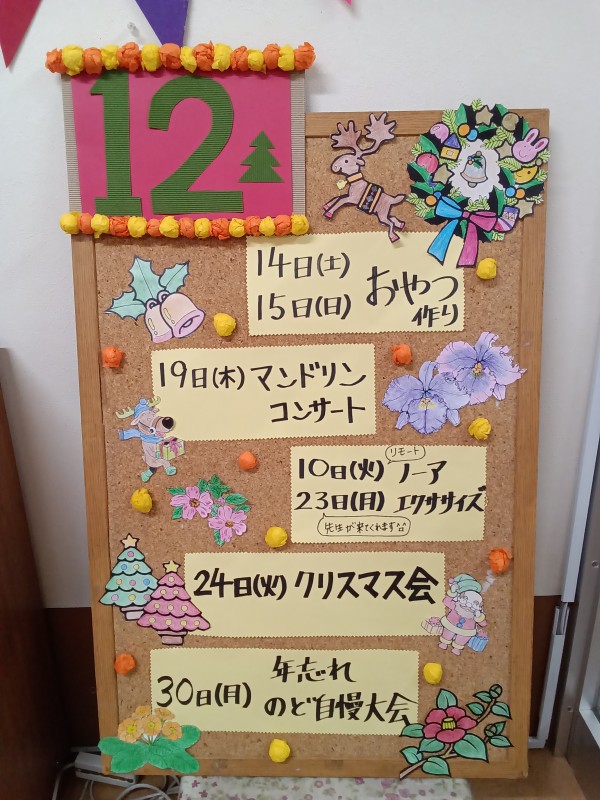 12
14日(土)
15日(日)
おやつ
作り
19日(木) マンドリン
コンサート
リモート
10日(火) ノーア
23日(月) エクササイズ
先生が来てくれます
24日(火) クリスマス会
年忘れ
30日(月) のど自慢大会